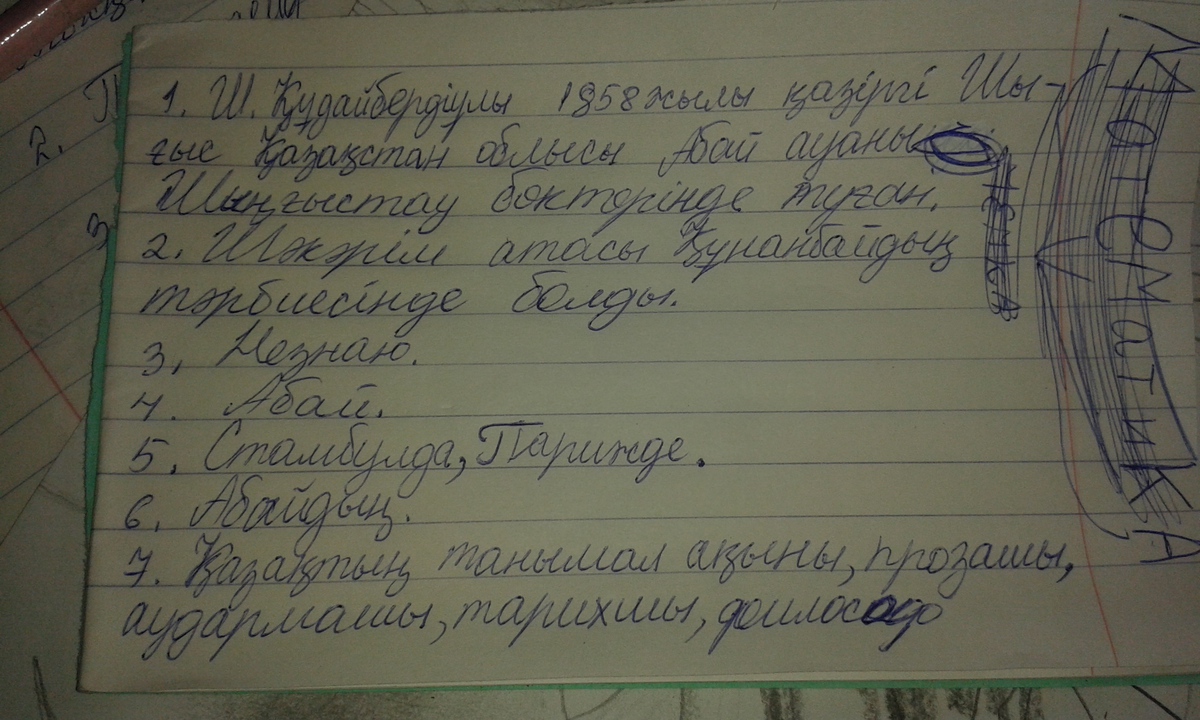 1. Ш. Құдайбердіұлы 1958 жылы қазіргі Шы-
ғыс Қазақстан облысы Абай ауаны
Шыңғыстау боктерінде туған.
2. Шәкәрім атасы Құнанбайдың
тәрбиесінде болды.
3. Незнаю.
4. Абай.
5. Стамбулда, Парижде.
6. Абайдың.
7. Қазақтың танымал ақыны, прозашы,
аудармашы, тарихшы, философ
МатеМатиКА
2.
3